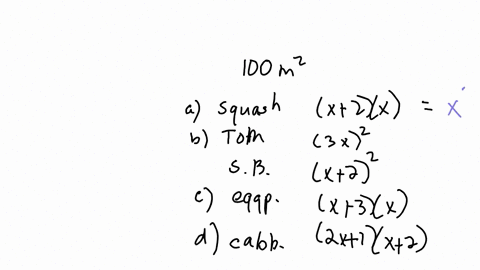 100 m²
a) squash (x+2)(x) = x
b) Tom (3x)²
S.B. (x+2)²
c) eggp. (x+3)(x)
d) cabb. (2x+1)(x+2)